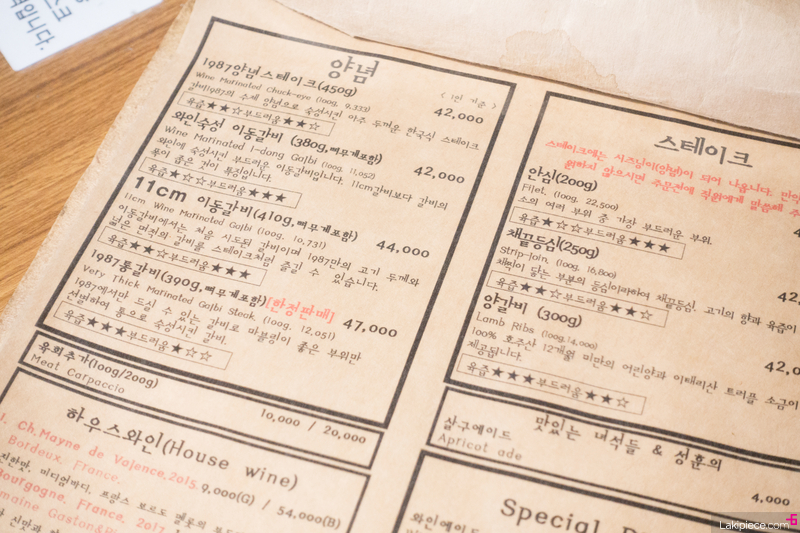 스크
적입니다.
양념
< 1인 기준 >
1987양념스테이크(450g)
42,000
Wine Marinated Chuck-eye (100g. 9,333)
갈비1987의 수제 양념으로 숙성시킨 아주 두꺼운 한국식 스테이크
육즙★★☆부드러움★★☆
와인숙성 이동갈비 (380g,뼈무게포함)
42,000
Wine Marinated I-dong Galbi (100g. 11,052)
와인에 숙성시킨 부드러운 이동갈비입니다. 11cm갈비보다 갈비의
폭이 좁은 것이 특징입니다.
육즙★☆☆부드러움★★★
11cm 이동갈비(410g,뼈무게포함)
44,000
11cm. Wine Marinated Galbi (100g. 10,731)
이동갈비에서는 처음 시도된 갈비이며 1987만의 고기 두께와
넓은 면적의 갈비를 스테이크처럼 즐길 수 있습니다.
육즙★★☆부드러움★★★
1987통갈비(390g,뼈무게포함)[한정판매]
47,000
Very Thick Marinated Galbi Steak (100g. 12,051)
1987에서만 드실 수 있는 갈비로 마블링이 좋은 부위만
선별하여 통으로 숙성시킨 갈비.
육즙★★★부드러움★☆☆
육회추가(100g/200g)
10,000 / 20,000
Meat Carpaccio
하우스와인(House wine)
1. Ch.Mayne de Valence.2015.
9,000(G) / 54,000(B)
Bordeaux. France.
진한맛, 미디엄바디, 프랑스 보르도
Bourgogne. France. 2017
스테이크
스테이크에는 시즈닝이(양념)이 되어 나옵니다. 만약
원하지 않으시면 주문전에 직원에게 말씀해 주
안심(200g)
Filet. (100g. 22,500)
소의 여러 부위 중 가장 부드러운 부위.
육즙★☆☆부드러움★★★
채끝등심(250g)
Strip-loin. (100g. 16,800)
채찍이 닿는 부분의 등심이라하여 채끝등심. 고기의 향과 육즙이
육즙★★☆부드러움★★☆
양갈비 (300g)
Lamb Ribs (100g. 14,000)
100% 호주산 12개월 미만의 어린양과 이태리산 트러플 소금이
제공됩니다.
육즙★★★부드러움★★☆
맛있는 녀석들 & 성훈의
살구에이드
4,000
Apricot ade
Special
와인에이드
Lakipiece.com